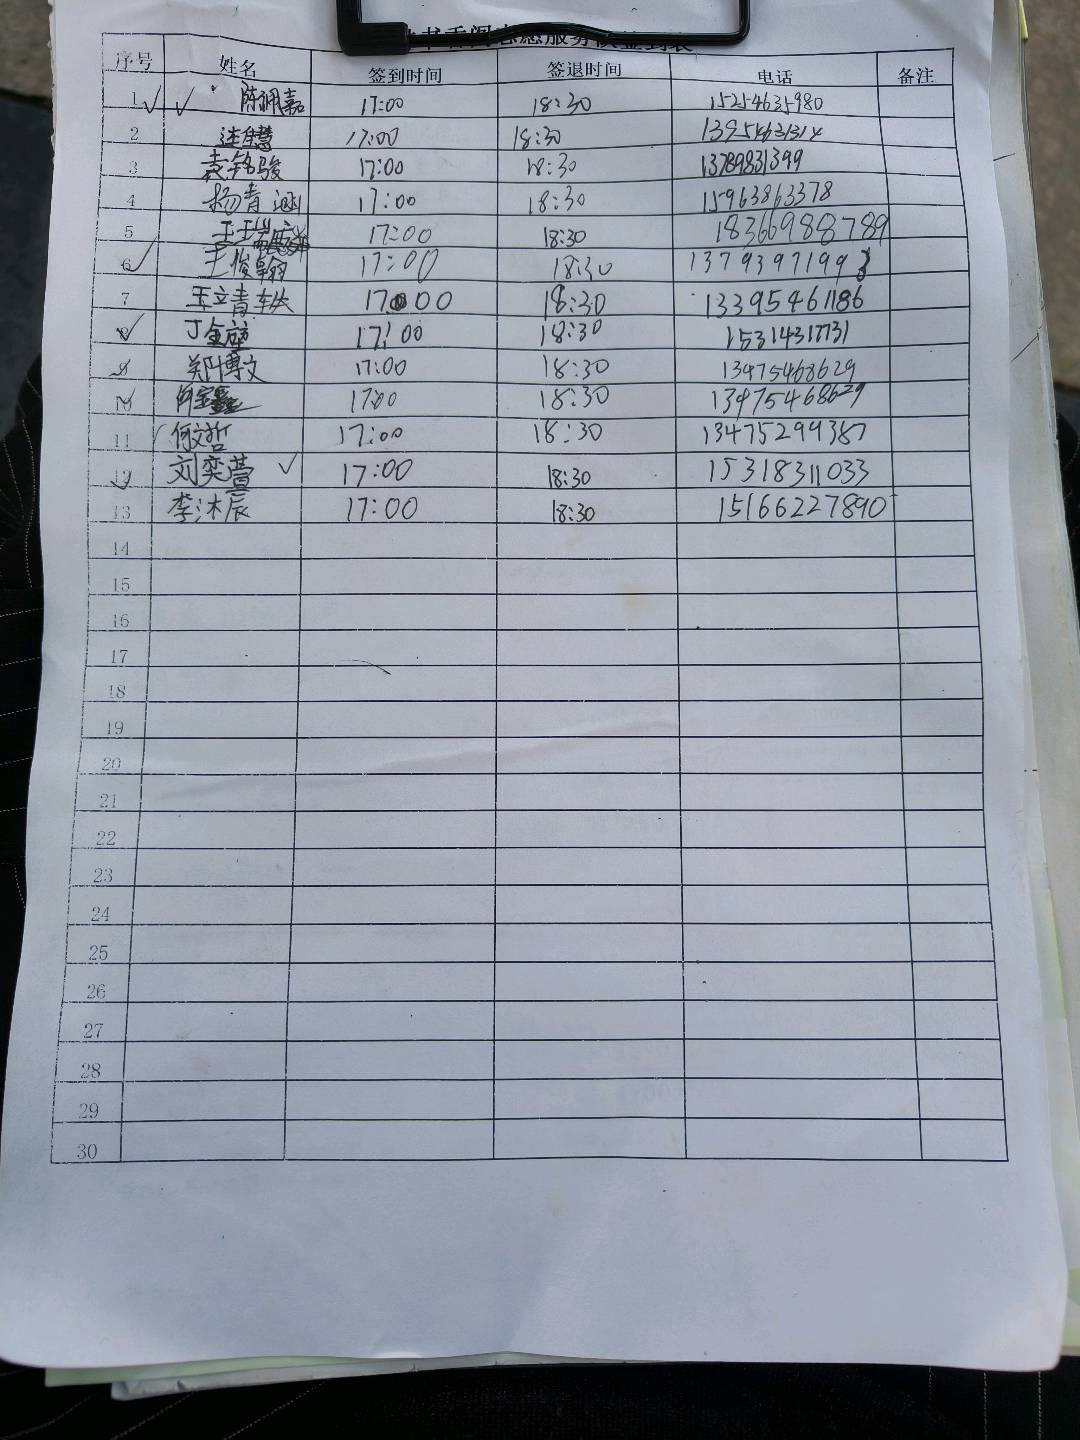 书香阁志愿服务队签到表
序号 姓名 签到时间 签退时间 电话 备注
1 陈佩嘉 17:00 18:30 15254635980
2 18:30 17:00 13954631314
3 袁铭骏 17:00 18:30 13789831399
4 杨青涵 17:00 18:30 15963863378
5 17:00 18:30 18366988789
6 王俊翱 17:00 18:30 13793971993
7 王立青 17:00 18:30
8 丁 17:00 18:30 15314317731
9 郑博文 17:00 18:30 13475468629
10 17:00 18:30 13475468629
11 何文哲 17:00 18:30 13475299387
12 刘奕萱 17:00 18:30 15318311033
13 李沐辰 17:00 18:30 15166227890
14
15
16
17
18
19
20
21
22
23
24
25
26
27
28
29
30